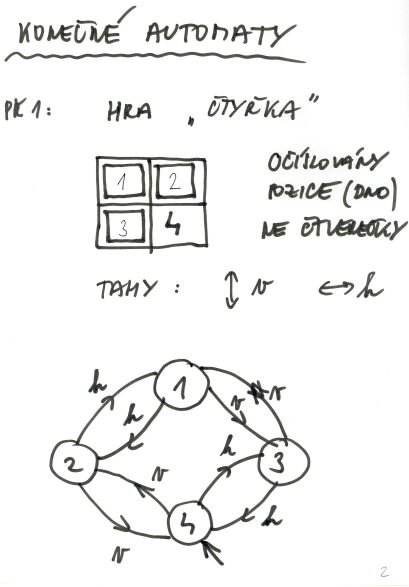 KONEČNÉ AUTOMATY
PŘ 1: HRA „ČTYŘKA"
1 2
3 4
OČÍSLOVÁNY
POZICE (DNO)
NE ČTVEREČKY
TAHY : ↕ v ↔ h
h 1
h v v
2 h 3
v
4 h
v
2